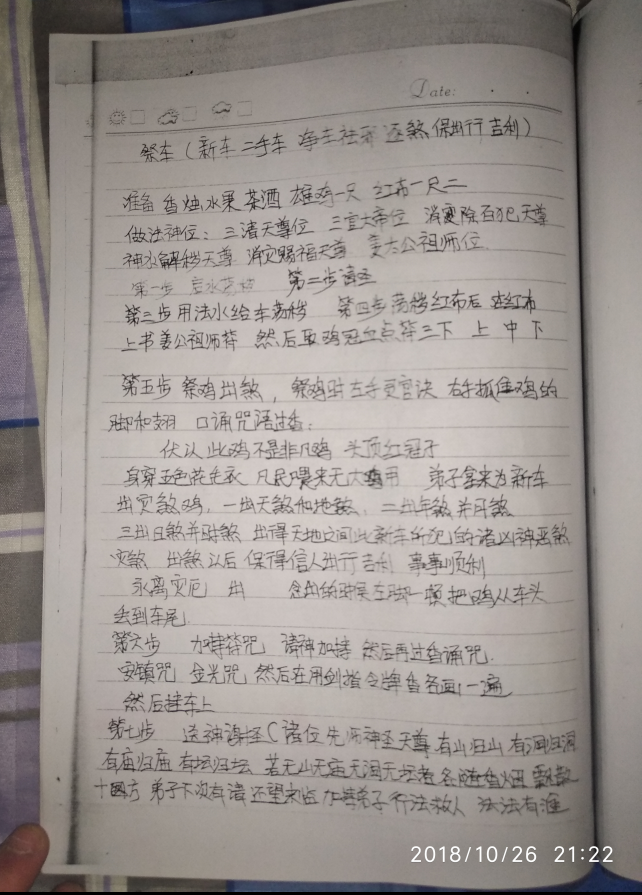 Date:
祭车（新车二手车 净车祛邪 逐煞 保出行吉利）
准备 香烛水果 茶酒 雄鸡一只 红布一尺二
做法神位：三清天尊位 三官大帝位 消灾除百犯天尊
神水解秽天尊 消灾赐福天尊 姜太公祖师位
第一步 启水荡秽 第二步 请圣
第三步用法水给车荡秽 第四步荡秽红布后 在红布
上书姜公祖师符 然后取鸡冠血点符三下 上 中 下
第五步 祭鸡出煞，祭鸡时左手 官诀 右手抓住鸡的
脚和翅 口诵咒语过香：
伏认此鸡不是非凡鸡 头顶红冠子
身穿五色花毛衣 凡民 来无大 用 弟子拿来为新车
出灾煞鸡，一出天煞和地煞，二出年煞并月煞
三出日煞并时煞 出得天地之间此新车所犯的诸凶神恶煞
灾煞 出煞以后 保得信人出行吉利 事事顺利
永离灾厄 出 念出的时候左脚一 把鸡从车头
丢到车尾
第六步 加持符咒 请神加持 然后再过香诵咒.
安镇咒 金光咒 然后在用剑指令牌香各画一遍
然后挂车上
第七步 送神 （诸位先师神圣天尊 有山归山 有洞归洞
有庙归庙 有坛归坛 若无山无庙无洞无坛者 各随香烟 飘散
十四方 弟子下次有请还望来临 加持弟子行法救人 法法有准
2018/10/26 21:22